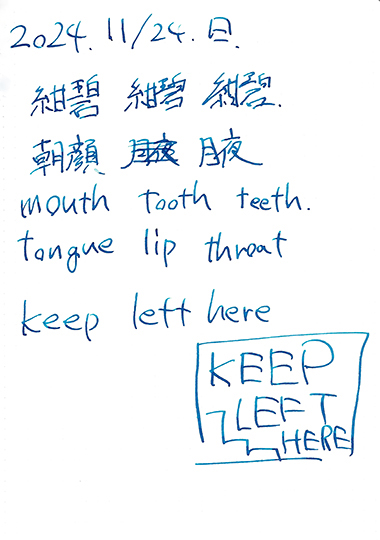 2024. 11/24. 日.
紺碧 紺碧 紺碧.
朝顔 月夜
mouth tooth teeth.
tongue lip throat
keep left here
KEEP
LEFT
HERE